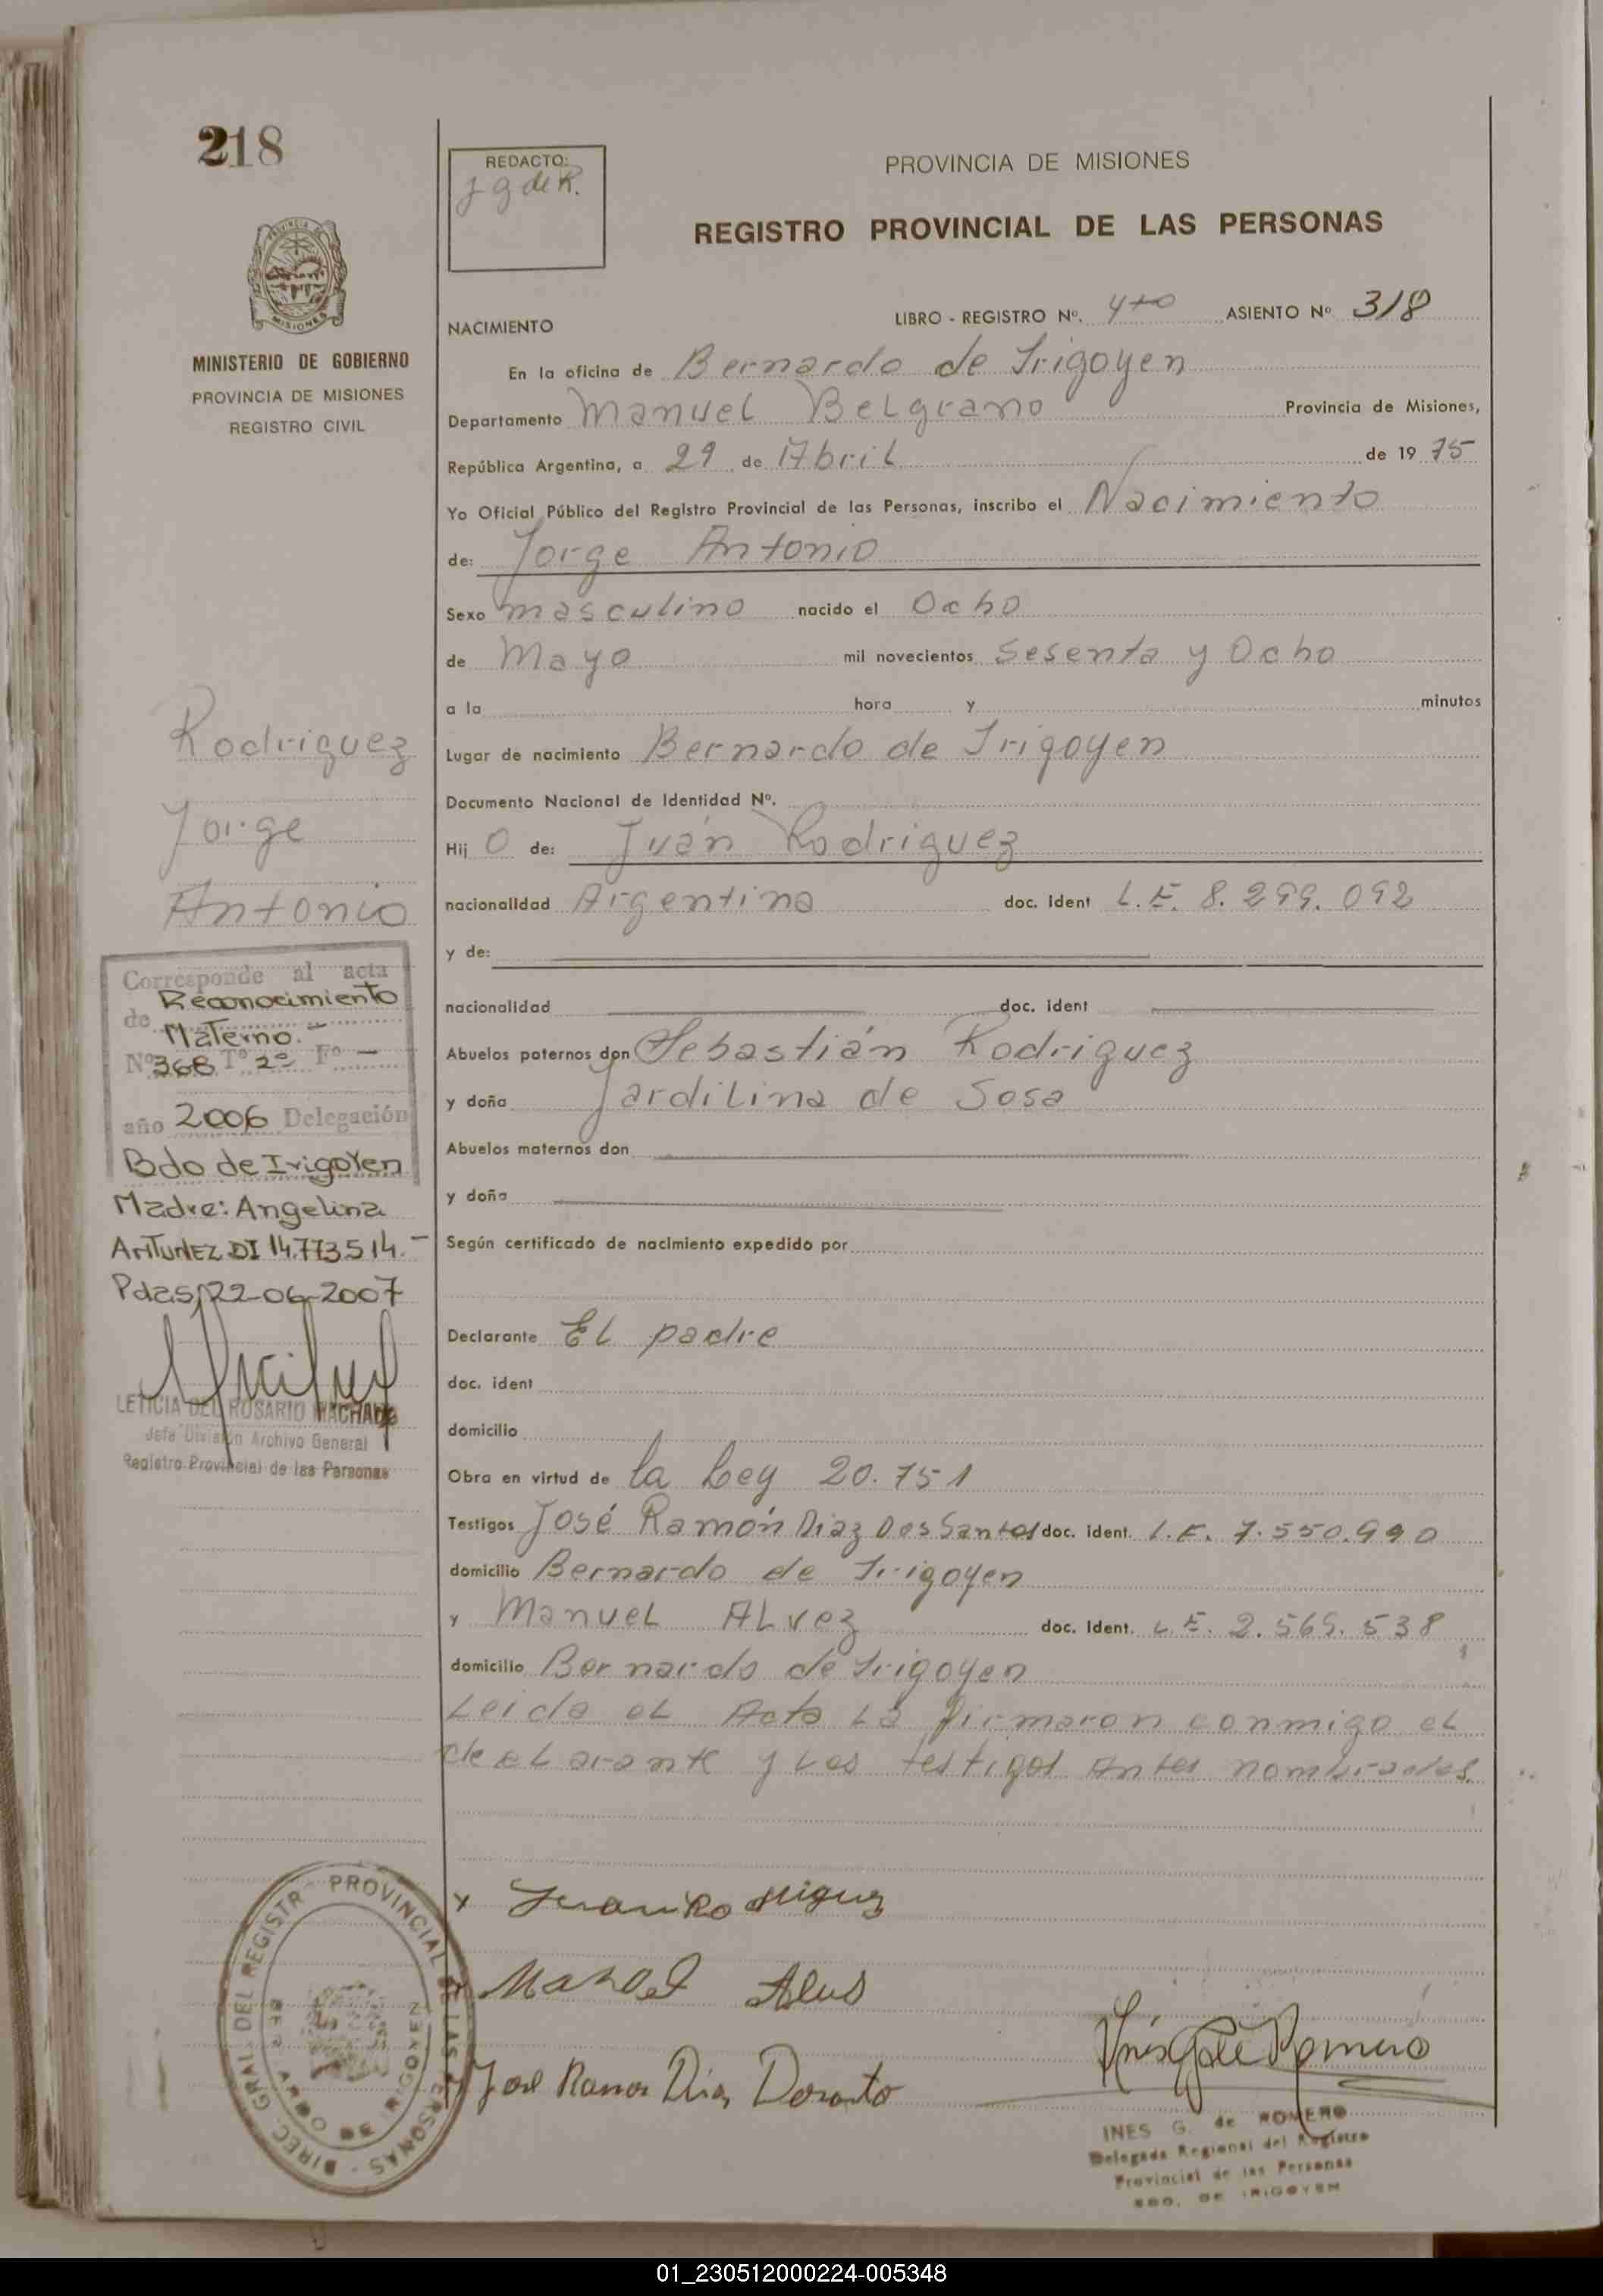 218
REDACTO:
J G de R.
PROVINCIA DE MISIONES
REGISTRO PROVINCIAL DE LAS PERSONAS
MISIONES
MINISTERIO DE GOBIERNO
PROVINCIA DE MISIONES
REGISTRO CIVIL
NACIMIENTO
LIBRO - REGISTRO Nº. ASIENTO Nº 318
En la oficina de Bernardo de Irigoyen
Departamento Manuel Belgrano Provincia de Misiones,
República Argentina, a 29 de Abril de 1975
Yo Oficial Público del Registro Provincial de las Personas, inscribo el Nacimiento
de: Jorge Antonio
Sexo masculino nacido el Ocho
de Mayo mil novecientos sesenta y Ocho
a la hora y minutos
Lugar de nacimiento Bernardo de Irigoyen
Documento Nacional de Identidad Nº.
Hij o de: Juán Rodriguez
nacionalidad Argentina doc. ident L.E. 8.299.092
y de:
nacionalidad doc. ident
Abuelos paternos don Sebastián Rodriguez
y doña Jardilina de Sosa
Abuelos maternos don
y doña
Según certificado de nacimiento expedido por
Declarante El padre
doc. ident
domicilio
Obra en virtud de la Ley 20.751
Testigos José Ramón Diaz Dos Santos doc. ident. L.E. 7.550.990
domicilio Bernardo de Irigoyen
y Manuel Alvez doc. Ident. L.E. 2.569.538
domicilio Bernardo de Irigoyen
Leida el Acta la firmaron conmigo el
declarante y los testigos antes nombrados
Rodriguez
Jorge
Antonio
Corresponde al acta
de Reconocimiento
Materno.
Nº 368 Tº 2º Fº —
año 2006 Delegación
Bdo de Irigoyen
Madre: Angelina
Antunez DI 14.773.514.-
Pdas, 22-06-2007
LETICIA DEL ROSARIO MACHADO
Jefa División Archivo General
Registro Provincial de las Personas
x Juan Rodriguez
Manoel Alves
José Ramon Dias Dosanto
Inés G de Romero
DIREC. GRAL. DEL REGISTR PROVINCIAL DE LAS PERSONAS
INES G. de ROMERO
Delegada Regional del Registro
Provincial de las Personas
BDO. DE IRIGOYEN
01_230512000224-005348